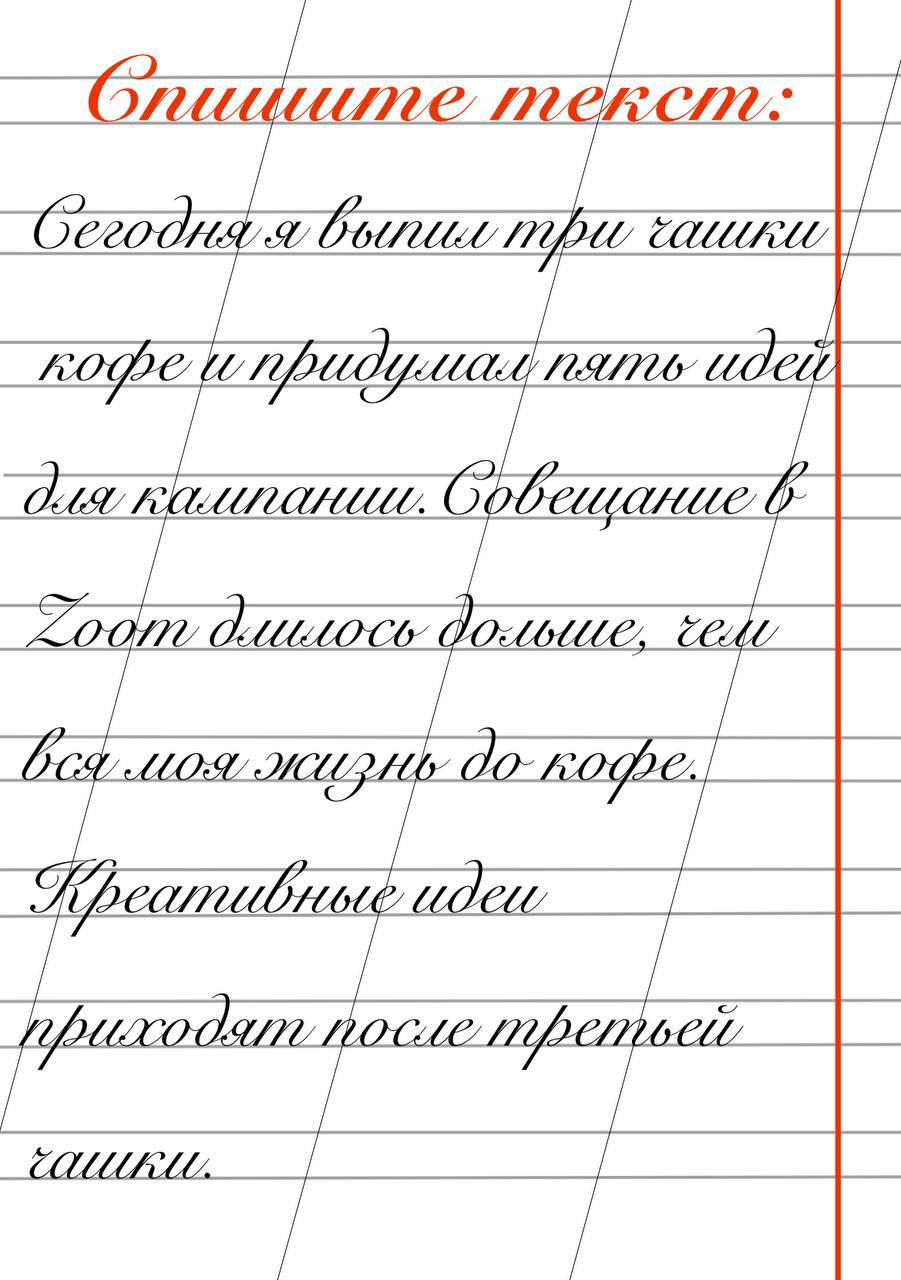 Спишите текст:
Сегодня я выпил три чашки
кофе и придумал пять идей
для кампании. Совещание в
Zoom длилось дольше, чем
вся моя жизнь до кофе.
Креативные идеи
приходят после третьей
чашки.